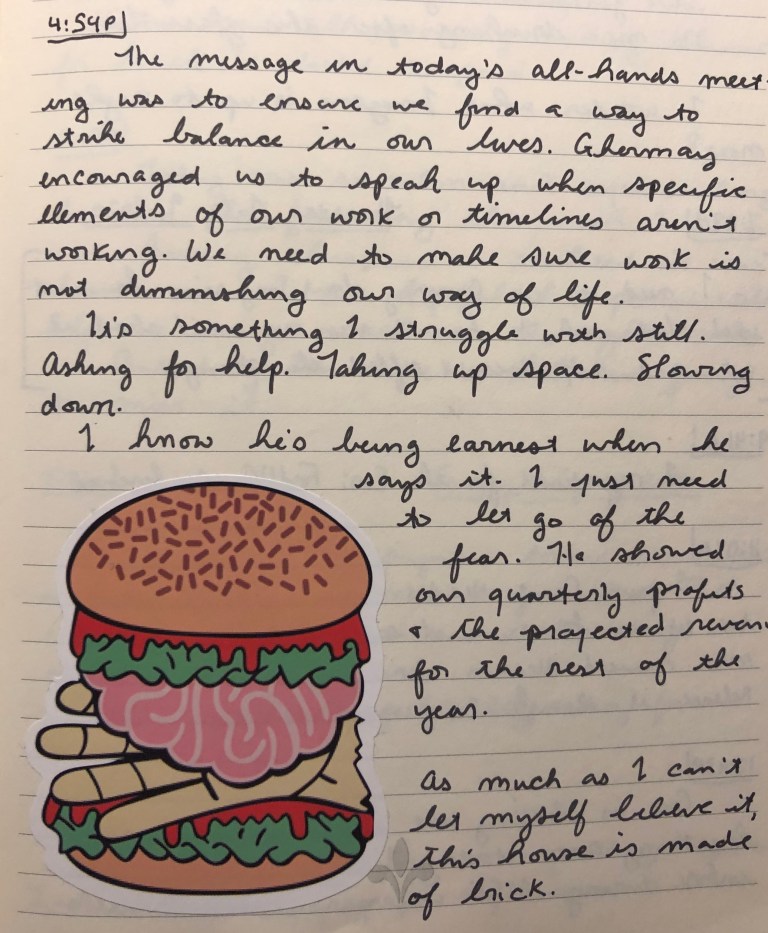 4:54P
The message in today's all-hands meet-
ing was to ensure we find a way to
strike balance in our lives. Ghermay
encouraged us to speak up when specific
elements of our work or timelines aren't
working. We need to make sure work is
not diminishing our way of life.
It's something I struggle with still.
Asking for help. Taking up space. Slowing
down.
I know he's being earnest when he
says it. I just need
to let go of the
fear. He showed
our quarterly profits
& the projected reven
for the rest of the
year.
As much as I can't
let myself believe it,
this house is made
of brick.